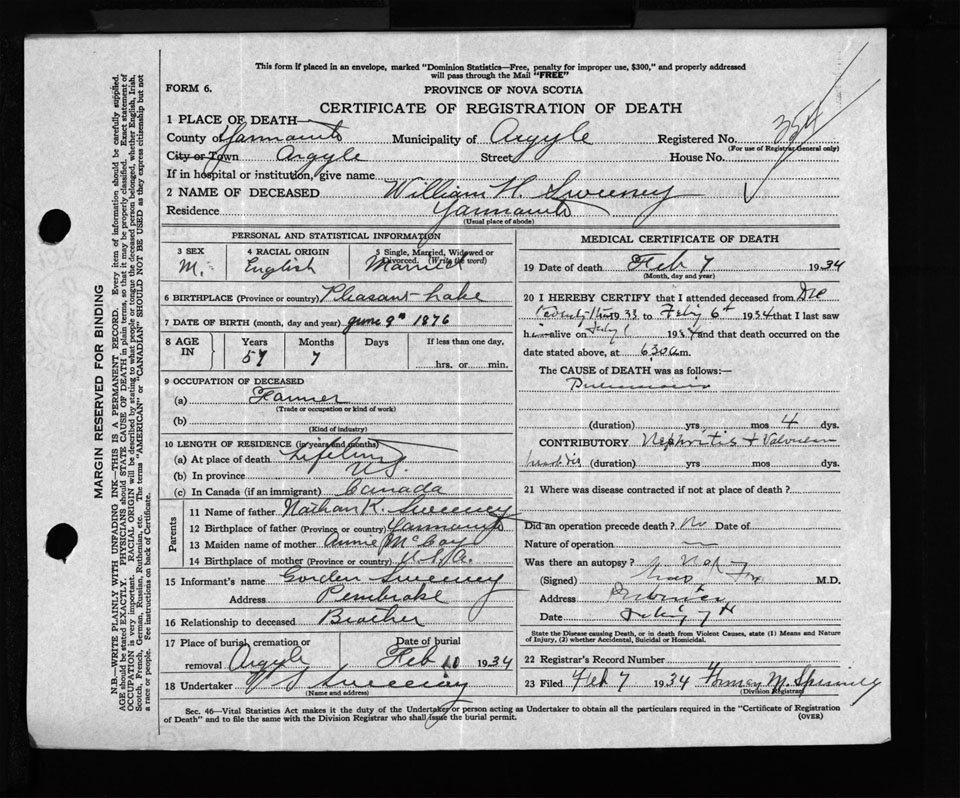 This form if placed in an envelope, marked "Dominion Statistics—Free, penalty for improper use, $300," and properly addressed
will pass through the Mail "FREE"
FORM 6.
PROVINCE OF NOVA SCOTIA
CERTIFICATE OF REGISTRATION OF DEATH
1 PLACE OF DEATH—
County of Yarmouth Municipality of Argyle Registered No. 354
(For use of Registrar General only)
City or Town Argyle Street House No.
If in hospital or institution, give name
2 NAME OF DECEASED William H. Sweeney
Residence Yarmouth
(Usual place of abode)
PERSONAL AND STATISTICAL INFORMATION
3 SEX
M.
4 RACIAL ORIGIN
English
5 Single, Married, Widowed or
Divorced. (Write the word)
Married
6 BIRTHPLACE (Province or country) Pleasant Lake
7 DATE OF BIRTH (month, day and year) June 9th 1876
8 AGE
IN
Years
57
Months
7
Days
If less than one day,
hrs. or min.
9 OCCUPATION OF DECEASED
(a) Farmer
(Trade or occupation or kind of work)
(b)
(Kind of industry)
10 LENGTH OF RESIDENCE (in years and months)
(a) At place of death Lifetime
(b) In province N.S.
(c) In Canada (if an immigrant) Canada
Parents
11 Name of father Nathan K. Sweeney
12 Birthplace of father (Province or country) Yarmouth
13 Maiden name of mother Annie McCoy
14 Birthplace of mother (Province or country) U.S.A.
15 Informant's name Gorden Sweeney
Address Pembroke
16 Relationship to deceased Brother
17 Place of burial, cremation or
removal Argyle
Date of burial
Feb 10 1934
18 Undertaker Sweeney
(Name and address)
MEDICAL CERTIFICATE OF DEATH
19 Date of death Feb 7 1934
(Month, day and year)
20 I HEREBY CERTIFY that I attended deceased from Dec
1933 to Feby 6th 1934 that I last saw
him alive on Feby 1934 and that death occurred on the
date stated above, at 630 a m.
The CAUSE of DEATH was as follows:—
Pneumonia
(duration) yrs mos 4 dys.
CONTRIBUTORY Nephritis + Valvular
heart dis (duration) yrs mos dys.
21 Where was disease contracted if not at place of death?
Did an operation precede death? No Date of
Nature of operation
Was there an autopsy? No
(Signed) Fox M.D.
Address Pubnico
Date Feby 7th
State the Disease causing Death, or in death from Violent Causes, state (1) Means and Nature
of Injury, (2) whether Accidental, Suicidal or Homicidal.
22 Registrar's Record Number
23 Filed Feb 7 1934 M.
(Division Registrar)
Sec. 46—Vital Statistics Act makes it the duty of the Undertaker or person acting as Undertaker to obtain all the particulars required in the "Certificate of Registration
of Death" and to file the same with the Division Registrar who shall issue the burial permit.
(OVER)
MARGIN RESERVED FOR BINDING
N.B.—WRITE PLAINLY WITH UNFADING INK—THIS IS A PERMANENT RECORD. Every item of information should be carefully supplied.
AGE should be stated EXACTLY. PHYSICIANS should STATE CAUSE OF DEATH in plain terms, so that it may be properly classified. Exact statement of
OCCUPATION is very important. RACIAL ORIGIN will be described by stating to what people or tongue the deceased person belonged, whether English, Irish,
Scotch, French, German, Russian, Ruthenian, etc. The terms "AMERICAN" or "CANADIAN" SHOULD NOT BE USED as they express citizenship but not
a race or people. See instructions on back of Certificate.